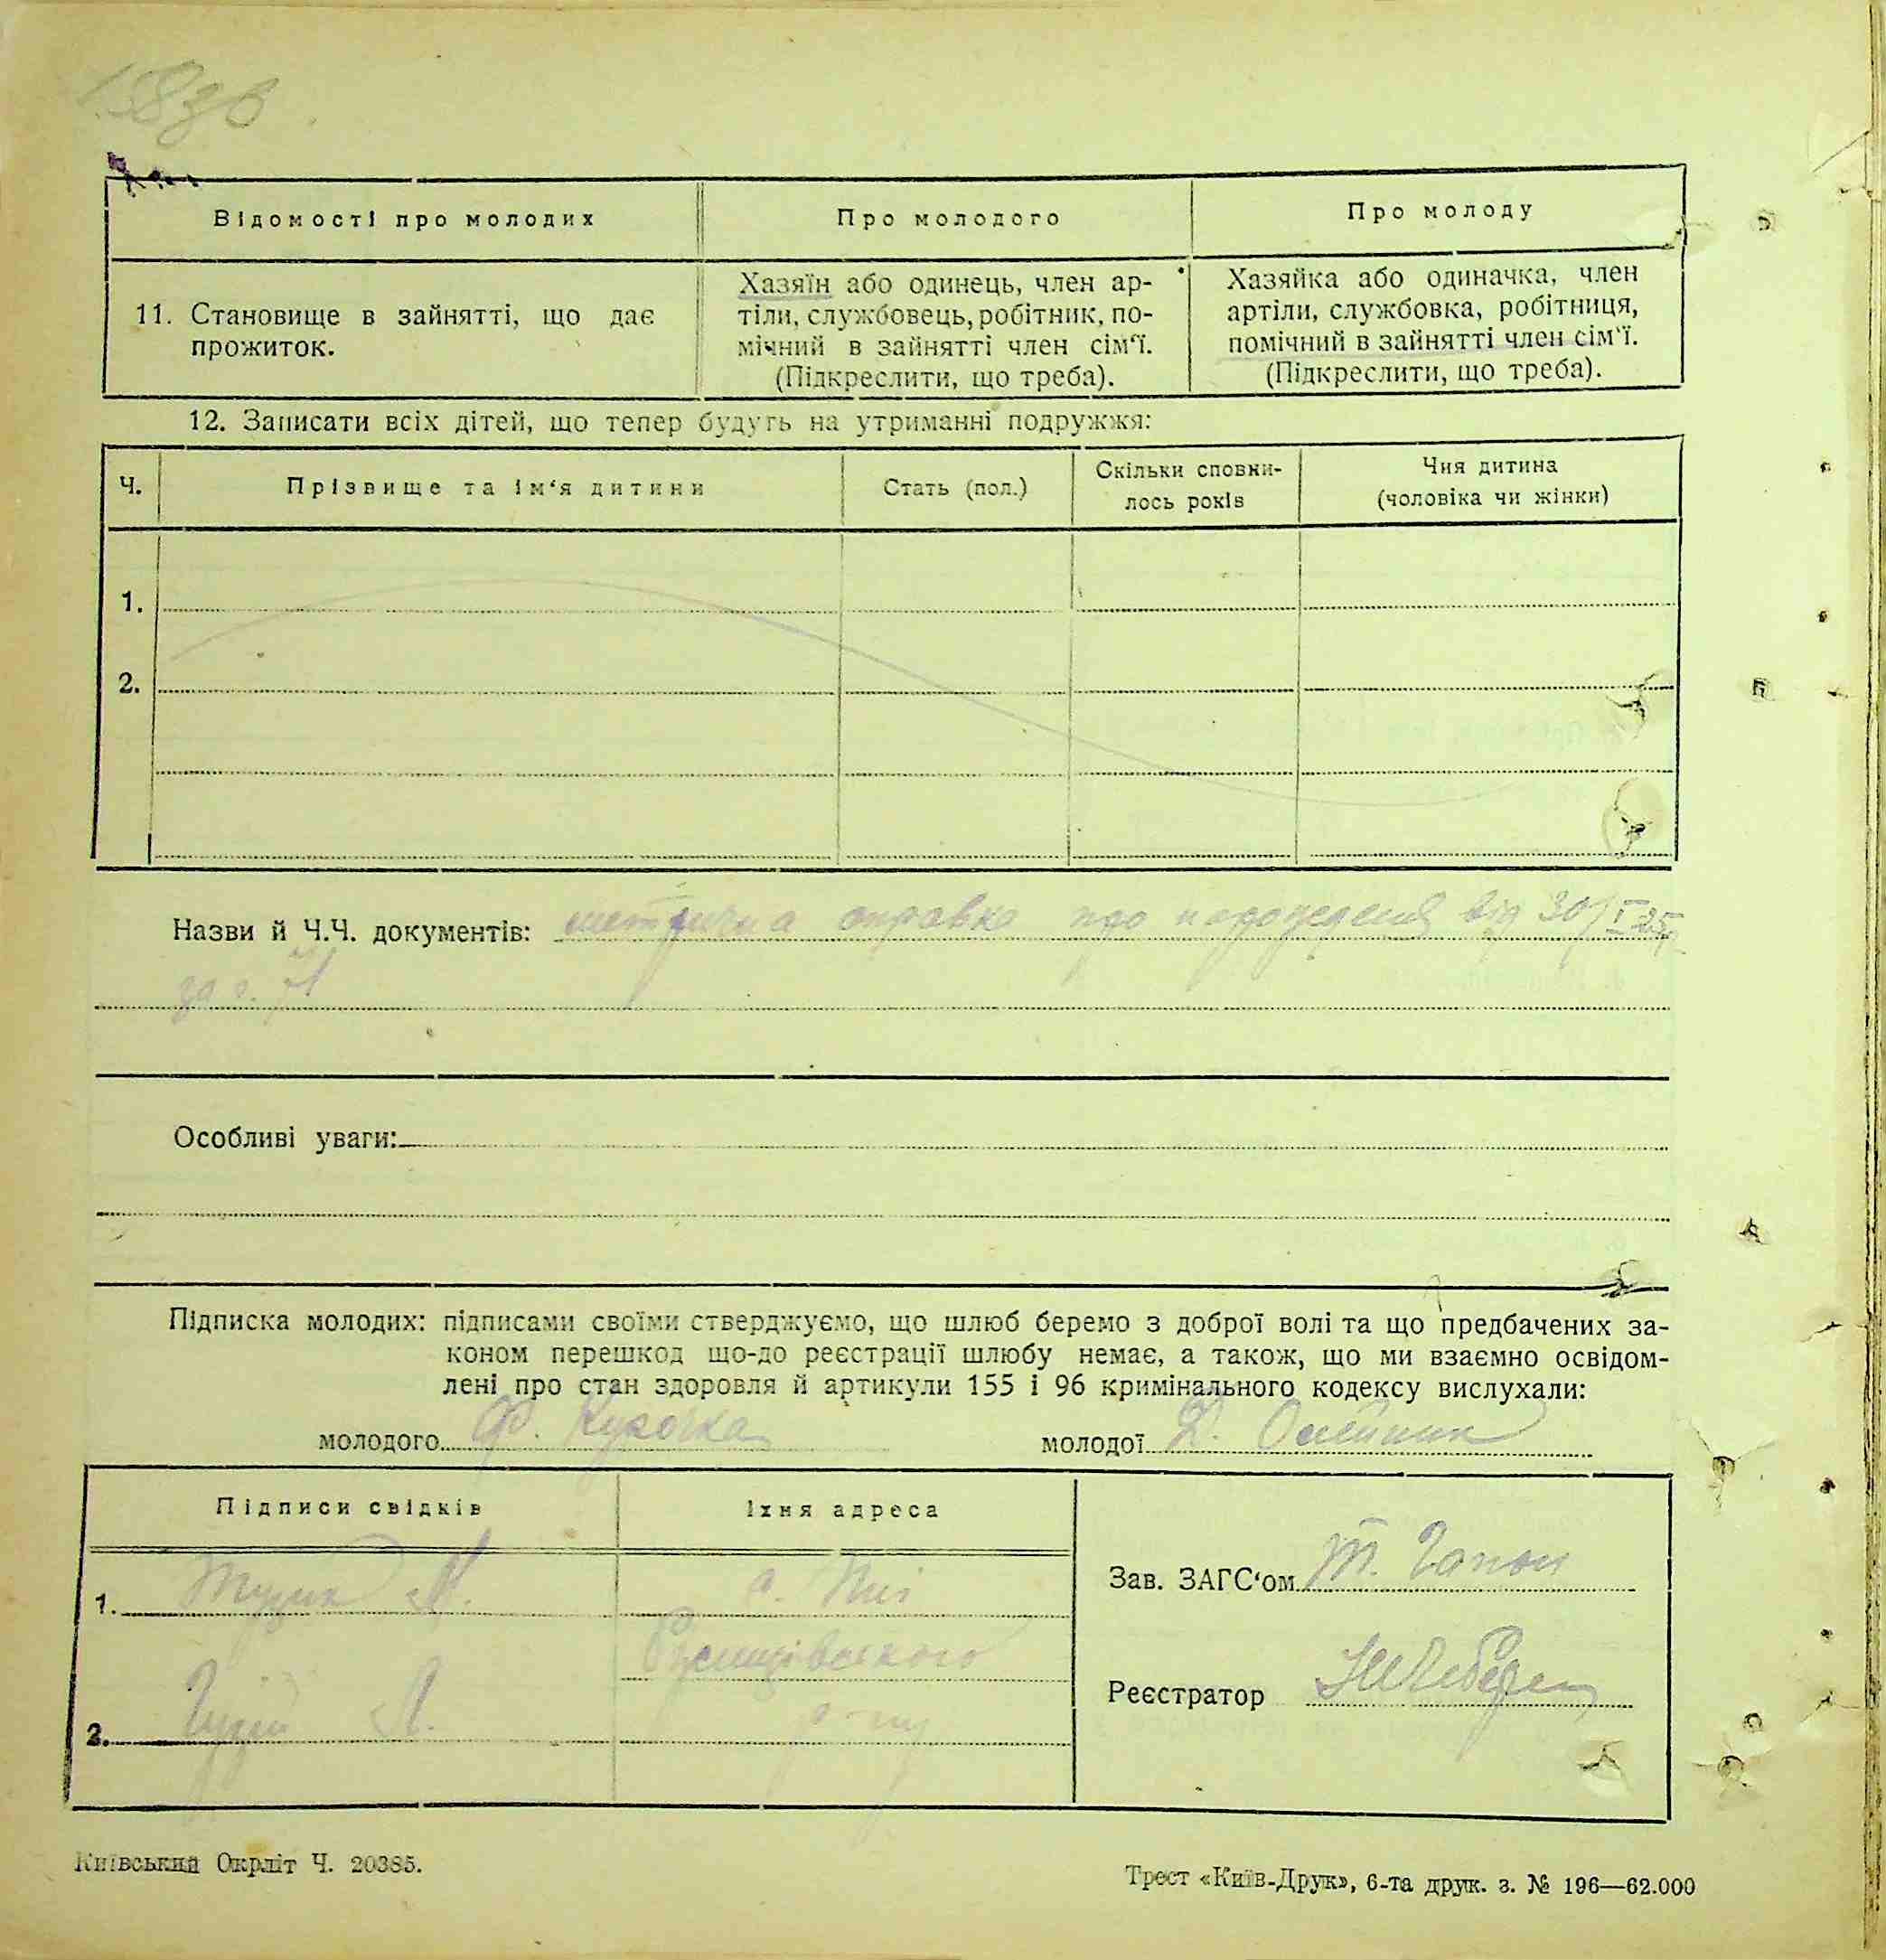 158зв.
Відомості про молодих
Про молодого
Про молоду
11. Становище в зайнятті, що дає
прожиток.
Хазяїн або одинець, член ар-
тіли, службовець, робітник, по-
мічний в зайнятті член сім'ї.
(Підкреслити, що треба).
Хазяйка або одиначка, член
артіли, службовка, робітниця,
помічний в зайнятті член сім'ї.
(Підкреслити, що треба).
12. Записати всіх дітей, що тепер будуть на утриманні подружжя:
Ч.
Прізвище та ім'я дитини
Стать (пол.)
Скільки сповни-
лось років
Чия дитина
(чоловіка чи жінки)
1.
2.
Назви й Ч.Ч. документів: метрична справка про народження від 30/I
за ч. 71
Особливі уваги:
Підписка молодих: підписами своїми стверджуємо, що шлюб беремо з доброї волі та що предбачених за-
коном перешкод що-до реєстрації шлюбу немає, а також, що ми взаємно освідом-
лені про стан здоровля й артикули 155 і 96 кримінального кодексу вислухали:
молодого Ф. Курочка
молодої Д. Олейник
Підписи свідків
Їхня адреса
1.
с. Пії
2.
р-ну
Зав. ЗАГС'ом Т. Гапон
Реєстратор
Київський Окрліт Ч. 20385.
Трест «Київ-Друк», 6-та друк. з. № 196—62.000